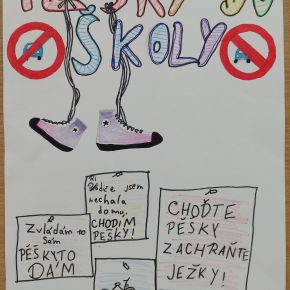 PĚŠKY DO
ŠKOLY
Zvládám to
sám
PĚŠKYTO
DÁM
jsem
nechala
doma,
CHODÍM
PĚŠKY!
CHOĎTE
PĚSKY
ZACHRAŇTE
JEŽKY!